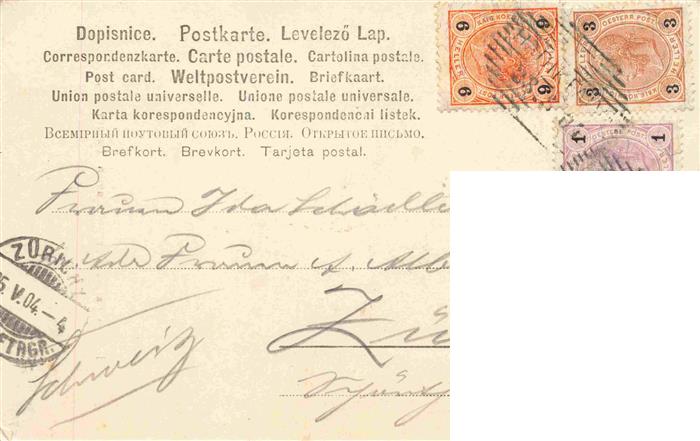 Dopisnice. Postkarte. Levelező Lap.
Correspondenzkarte. Carte postale. Cartolina postale.
Post card. Weltpostverein. Briefkaart.
Union postale universelle. Unione postale universale.
Karta korespondencyjna. Korespondenčni listek.
Всемірный почтовый союзъ. Россия. Открытое письмо.
Brefkort. Brevkort. Tarjeta postal.
6 6
6 6
3 3
3 3
1 1
Frauen Ida
Frauen A.
Zü
Schweiz
ZÜRICH
V.04.-4